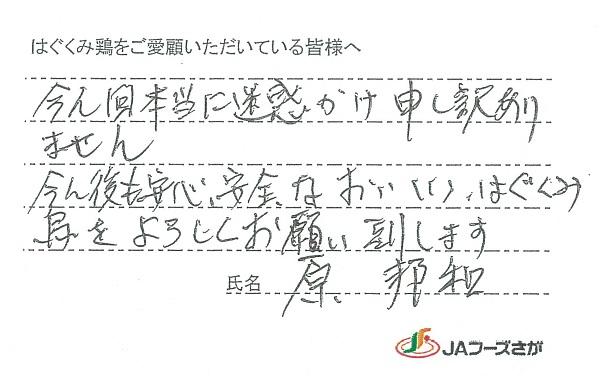 はぐくみ鶏をご愛顧いただいている皆様へ
今ん回本当に迷惑かけ 申し訳あり
ません
今ん後も安心、安全なおいしい、はぐくみ
鳥をよろしくお願い致します
氏名 原 邦和
JAフーズさが